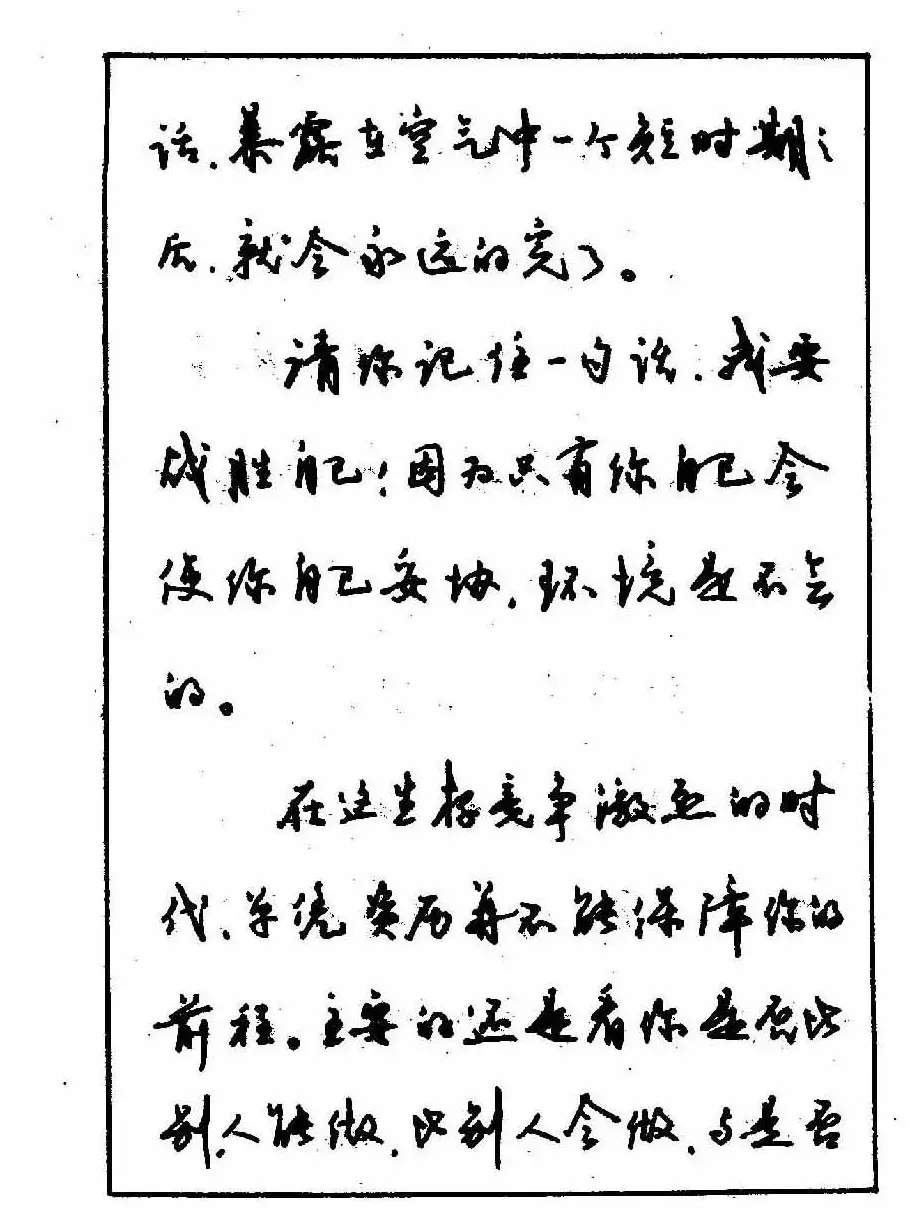 话，暴露在空气中一个短时期之
后，就会永远的完了。
请你记住一句话，我要
战胜自己！因为只有你自己会
使你自己妥协，环境是不会
的。
在这生存竞争激烈的时
代，单凭资历并不能保障你的
前程。主要的还是看你是否比
别人能做，比别人会做，与是否